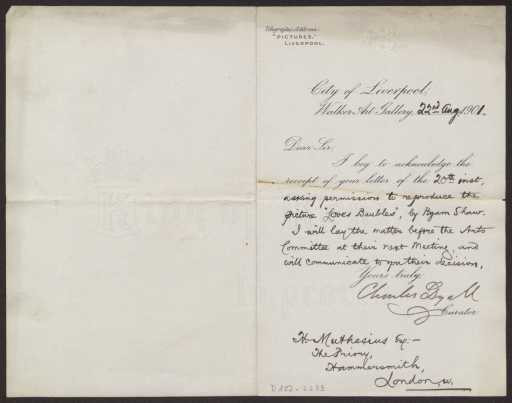 Telegraphic Address:
"PICTURES,"
LIVERPOOL.
City of Liverpool.
Walker Art Gallery, 22nd Aug 1901.
Dear Sir,
I beg to acknowledge the
receipt of your letter of the 20th inst,
asking permission to reproduce the
picture 'Loves Baubles', by Byam Shaw.
I will lay the matter before the Arts
Committee at their next Meeting, and
will communicate to you their decision,
Yours truly
Charles Dyall
Curator
H. Muthesius Esq:-
The Priory,
Hammersmith,
London, W.